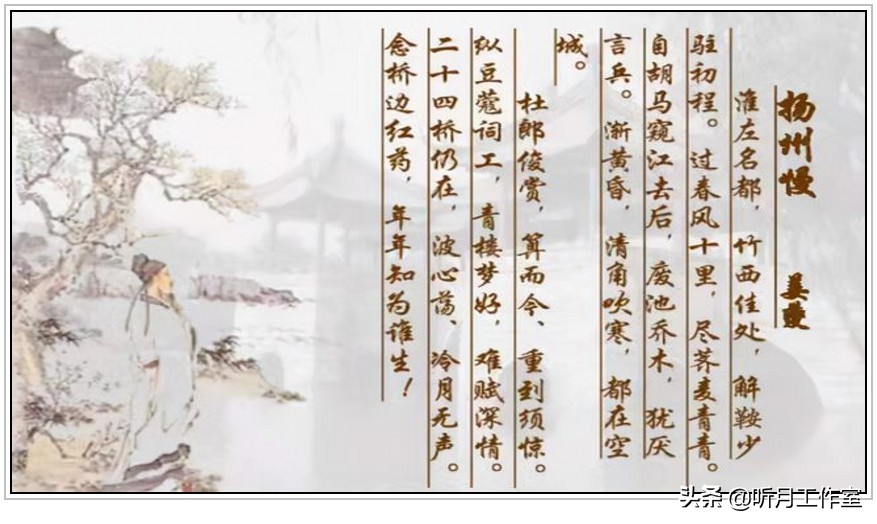 扬州慢　姜夔
淮左名都，竹西佳处，解鞍少
驻初程。过春风十里，尽荠麦青青。
自胡马窥江去后，废池乔木，犹厌
言兵。渐黄昏，清角吹寒，都在空
城。
杜郎俊赏，算而今、重到须惊。
纵豆蔻词工，青楼梦好，难赋深情。
二十四桥仍在，波心荡、冷月无声。
念桥边红药，年年知为谁生！
头条 @听月工作室